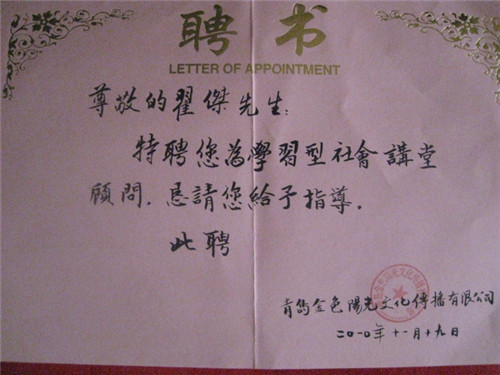 聘书
LETTER OF APPOINTMENT
尊敬的翟傑先生：
特聘您为學習型社會講堂
顧問．恳請您給予指導．
此聘
青島金色陽光文化傳播有限公司
二〇一〇年十一月十九日